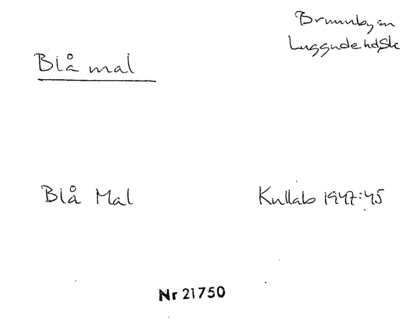 Brunnby sn
Luggude hd Sk
Blå mal
Blå Mal Kullab 1947:45
Nr 21750